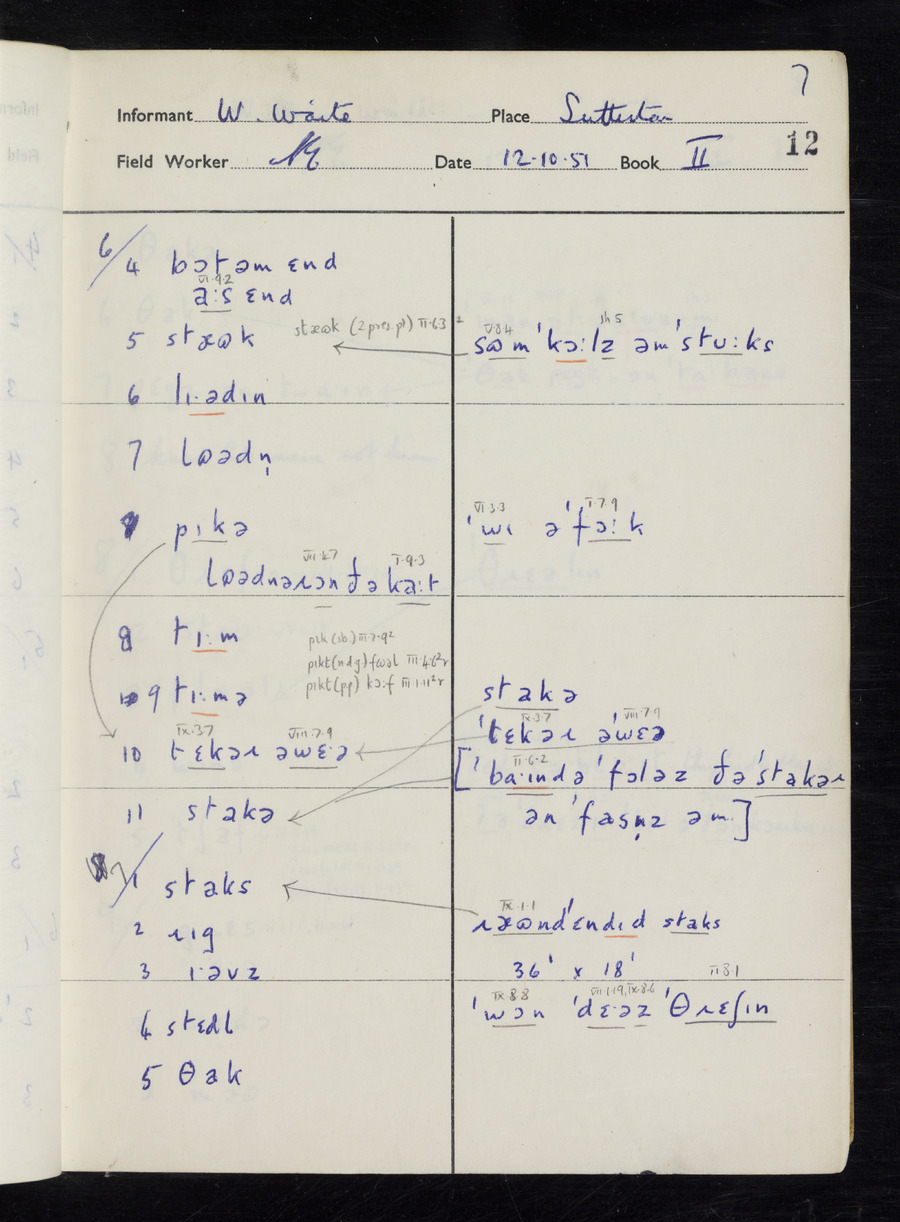 7
Informant W. Waite Place Sutterton
Field Worker Date 12·10·51 Book II
12
6/ 4 bɔtəm ɛnd
VI·9·2
a:s ɛnd
5 stæɷk stæɷk (2 pres. pl) II·6·3²
V·8·4 sh 5
sɷm ˈkɔ:lz əmˈstʊ:ks
6 lɪ·ədɪn
7 lɷədn̩
pɪkə
VI·3·3 I·7·9
ˈwɪ əˈfɔ:k
I·9·3
lɷədnəɹɔn ðə ka:t
8 tɪ:m
pɪk (sb.) III·7·9²
pɪkt(ndg) fɷəl III·4·6²r
pɪkt(pp) kɔ:f III·1·11²r
9 tɪ:mə
stakə
IX·3·7 VIII·7·9
10 tɛkəɹ əwɛ·ə
IX·3·7 VIII·7·9
ˈtɛkəɹ əˈwɛə
II·6·2
[ˈba·ɪndəˈfɔləz ðəˈstakəɹ
ənˈfasn̩z əm]
11 stakə
7/ 1 staks
IX·1·1
ɹæɷndˈɛndɪd staks
2 ɹɪg
3 ɪ·əvz
36' x 18'
IX·8·8 VII·1·19, IX·8·6 II·8·1
ˈwɔn ˈdɛ·əz ˈθɹɛʃɪn
4 stɛdl
5 θak